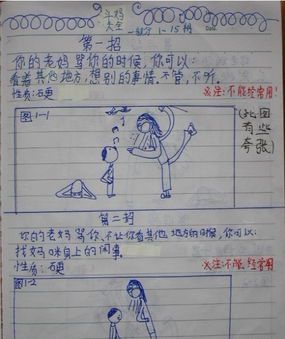 斗妈
大全
一部分 1-15招
第一招
你的老妈骂你的时候,你可以:
看着其他地方,想别的事情。不管,不听。
性质:石更
※注:不能经常用!
图1-1
(此图
有些
夸张)
第二招
你的老妈骂你,不让你看其他地方的时候,你可以:
找妈咪身上的闲事。
性质:石更
※注:不能经常用
图1-2